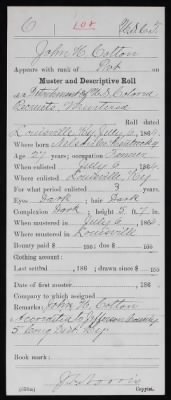 C U.S.C.T.
John H. Cotton
Appears with rank of Pvt. on
Muster and Descriptive Roll
of a Detachment of U.S. Colored
Recruits,
Roll dated
Louisville Ky, July 6, 1864.
Where born Nelson Co. Kentucky
Age 27 years; occupation Farmer
When enlisted July 6, 1864.
Where enlisted Louisville, Ky
For what period enlisted 3 years.
Eyes Dark; hair Dark
Complexion Dark; height 5 ft. 7 in.
When mustered in July 6, 1864.
Where mustered in Louisville
Bounty paid $ 100; due $ 100
Clothing account:
Last settled 186; drawn since $ 100
Date of first muster 186
Company to which assigned
Remarks: John H. Cotton
Accredited to Jefferson County
5 Cong Dist. Ky.
Book mark:
Copyist.